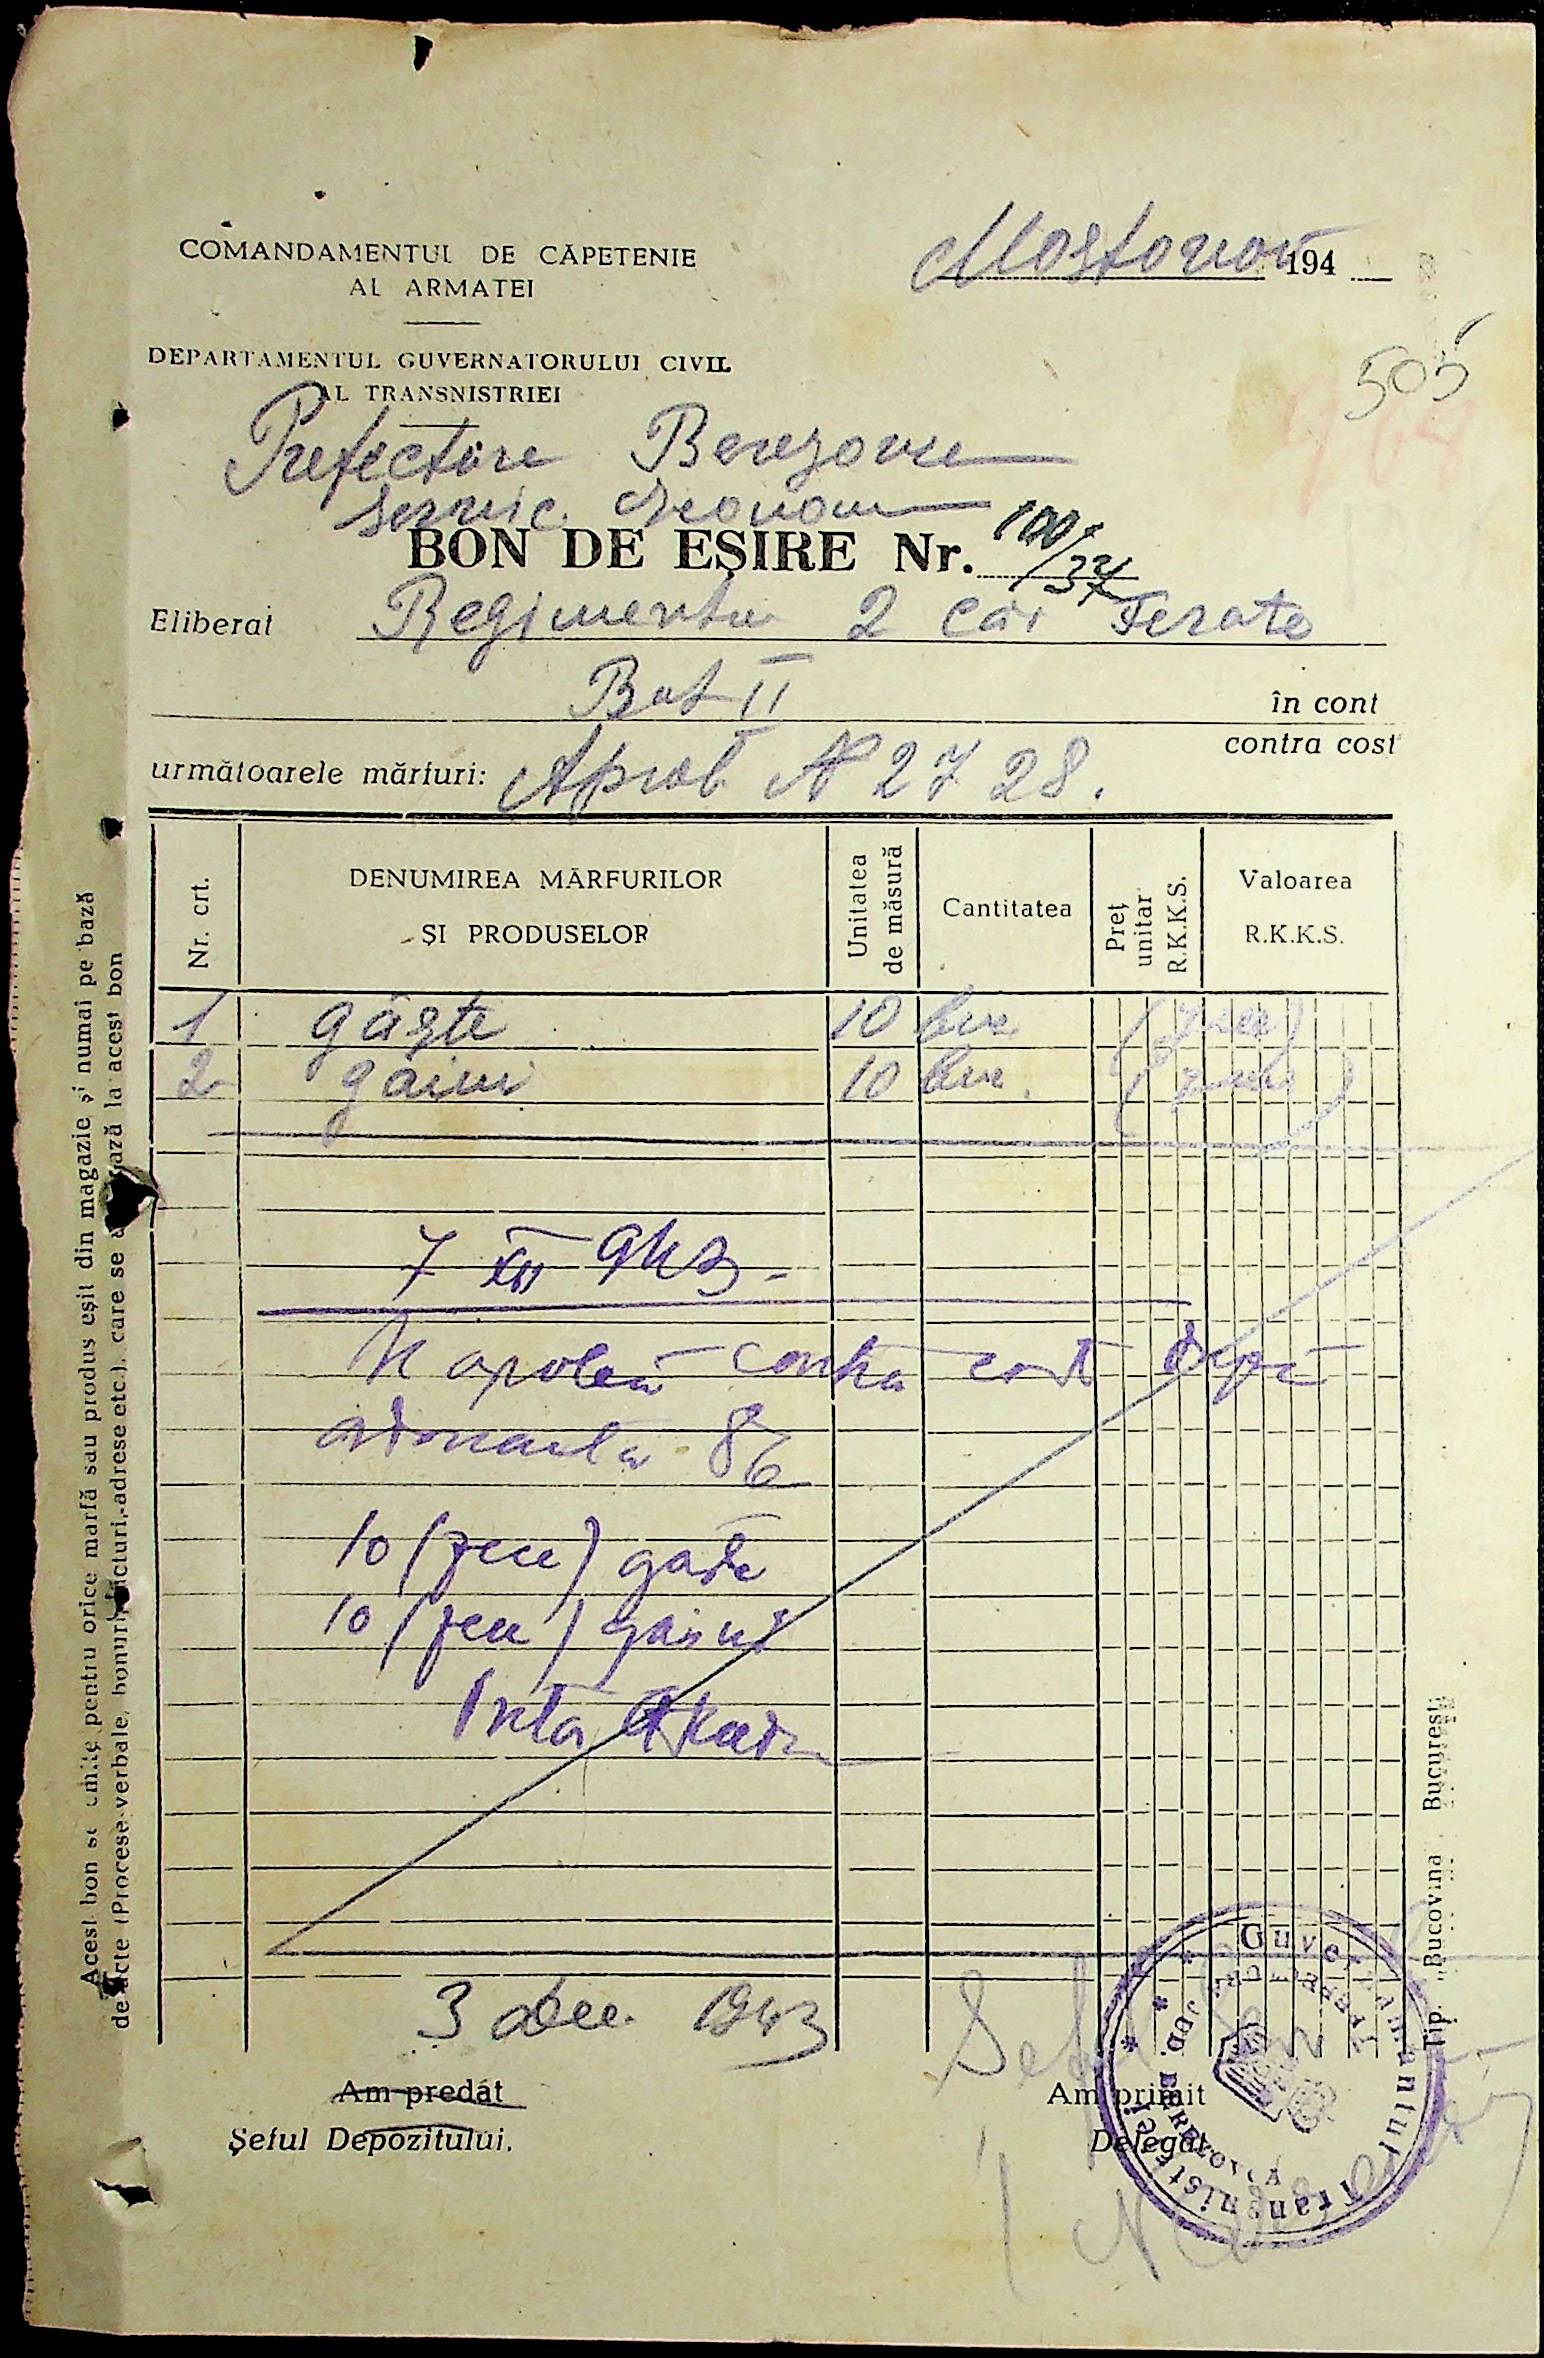 COMANDAMENTUL DE CĂPETENIE
AL ARMATEI
Mostovoi 194
505
DEPARTAMENTUL GUVERNATORULUI CIVIL
AL TRANSNISTRIEI
Prefectura Berezovca
Servic. Econom
BON DE EȘIRE Nr. 100/37
Eliberat Regimentu 2 Căi Ferate
Bat II în cont
contra cost
următoarele mărfuri: Aprob. N 2728.
Nr. crt.
DENUMIREA MĂRFURILOR
ȘI PRODUSELOR
Unitatea
de măsură
Cantitatea
Preț
unitar
R.K.K.S.
Valoarea
R.K.K.S.
1 gâște 10 buc. (zece)
2 găini 10 buc. (zece)
7 XII 943.
contra cost după
86
10 (zece) gâște
10 (zece) găini
3 Dec. 1943
Am predat
Șeful Depozitului.
Am primit
Delegat
Guvernamântul Transnistriei
JUD. BEREZOVCA
Acest bon se emite pentru orice marfă sau produs eșit din magazie și numai pe bază
de acte (Procese-verbale, bonuri, adrese etc.), care se la acest bon
Tip. „Bucovina București